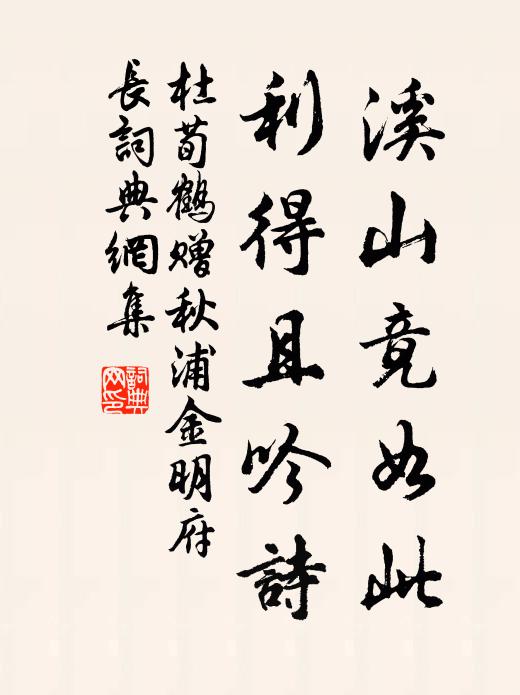 溪山竟如此
利得且吟詩
杜荀鶴贈秋浦金明府
長詞典網集
詞典网印